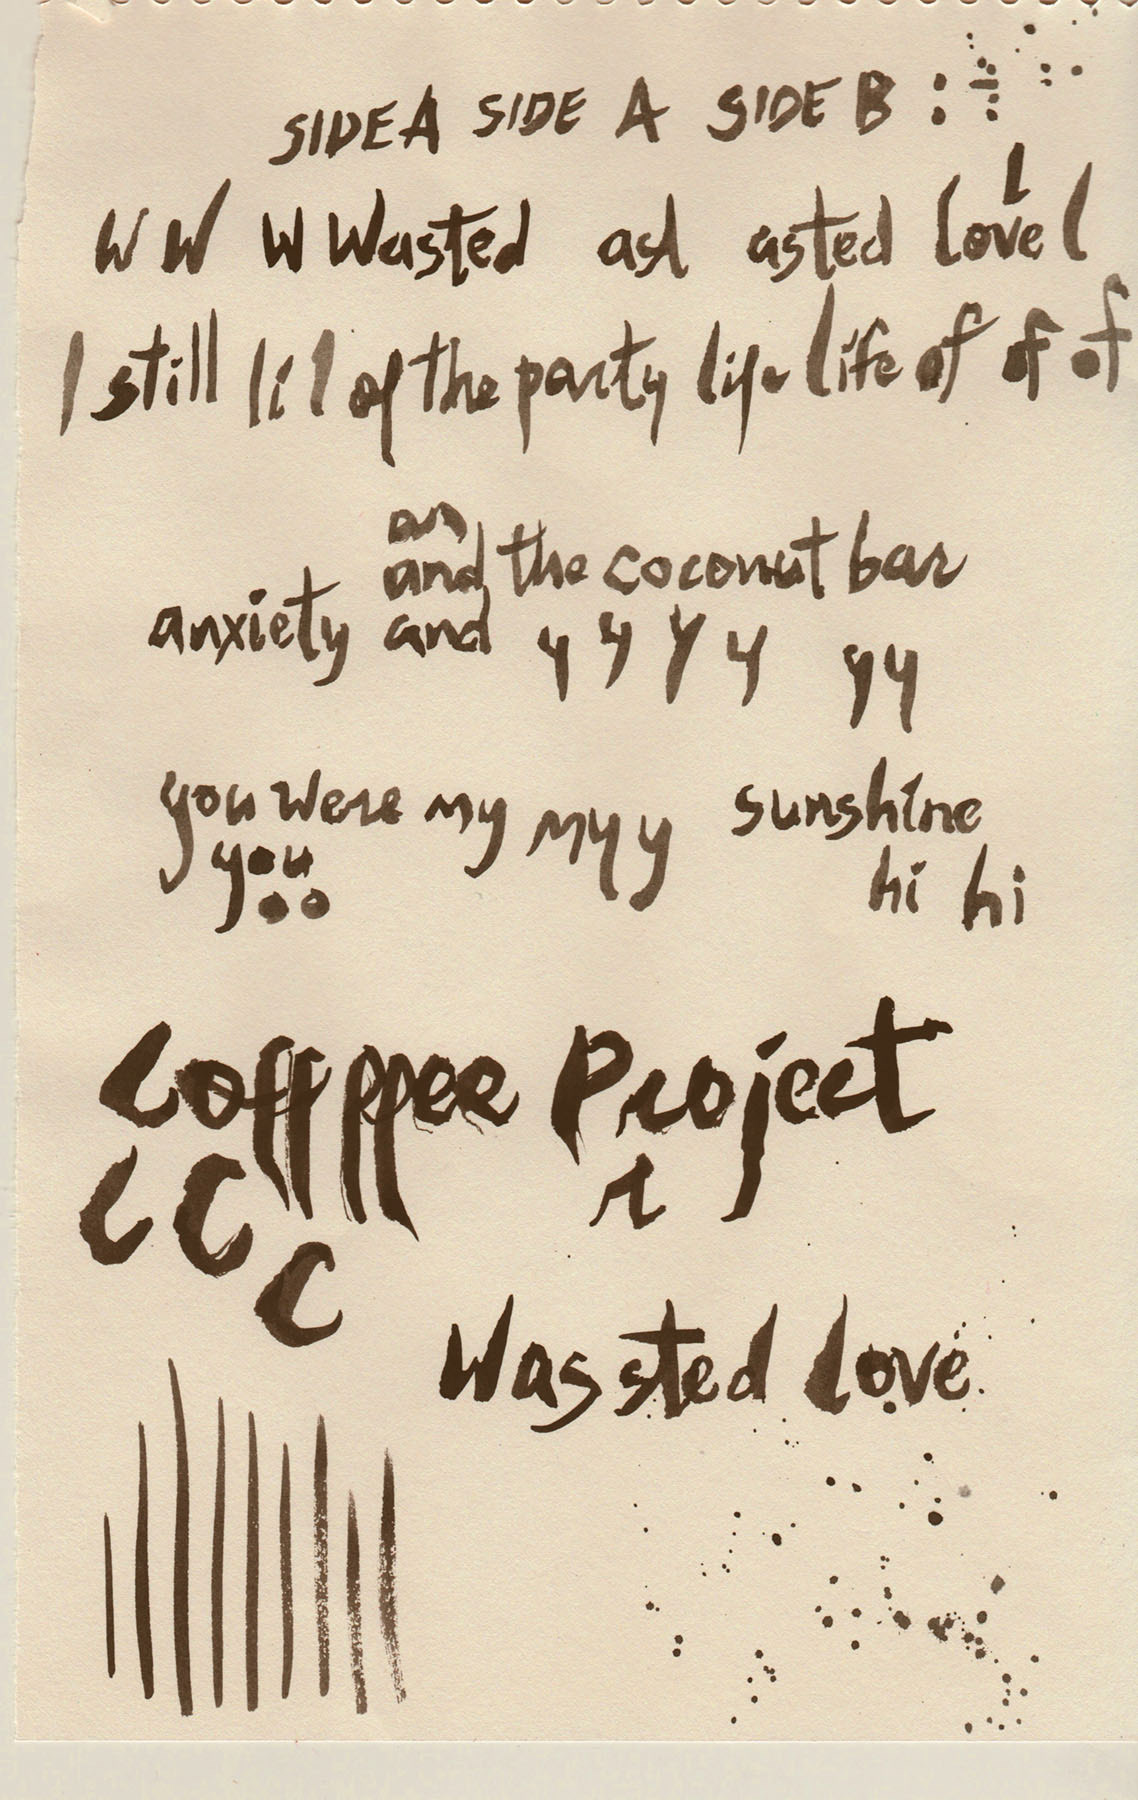 SIDE A SIDE A SIDE B :
l
W W W Wasted asl asted love l
I still li l of the party life life of of of
an
and the coconut bar
anxiety and y y y y y y
you were my my y sunshine
you hi hi
Cofffppee Project
C C r
C
Wassted love